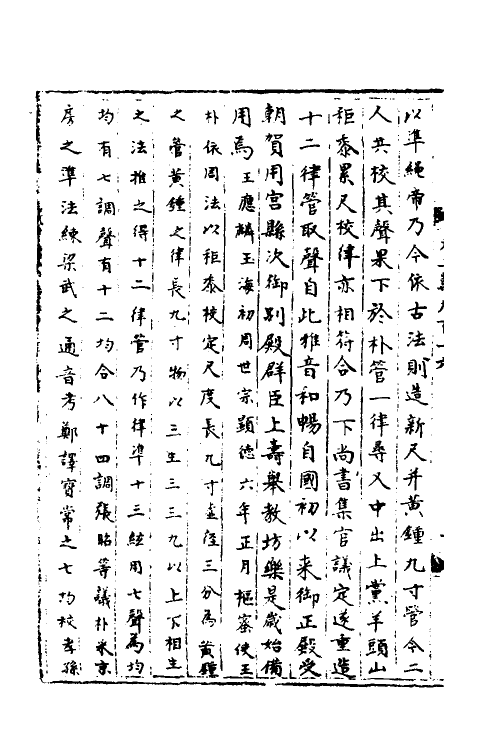 以準繩帝乃令依古法則造新尺并黃鍾九寸管令二
人共校其聲果下於朴管一律尋又中出上黨羊頭山
秬黍累尺校律亦相符合乃下尚書集官議定遂重造
十二律管取聲自此雅音和暢自國初以来御正殿受
朝賀用宮縣次御别殿群臣上壽舉教坊樂是歲始備
用焉王應麟玉海初周世宗顯德六年正月樞密使王
朴依周法以秬黍校定尺度長九寸虚徑三分為黃鍾
之管黃鍾之律長九寸物以三生三三九以上下相生
之法推之得十二律管乃作律準十三絃用七聲為均
均有七調聲有十二均合八十四調張昭等議朴采京
房之準法練梁武之通音考鄭譯寳常之七均校孝孫